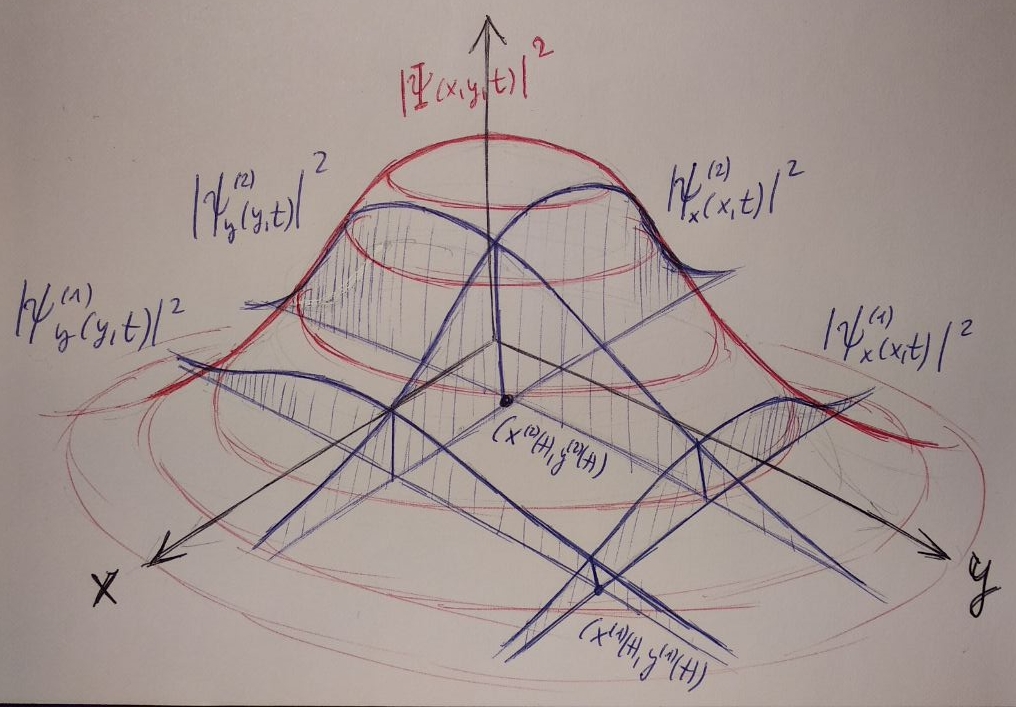 |Ψ(x,y,t)|²
|ψ_y^(2)(y,t)|²
|ψ_x^(2)(x,t)|²
|ψ_y^(1)(y,t)|²
|ψ_x^(1)(x,t)|²
(x^(2)(t), y^(2)(t))
x
y
(x^(1)(t), y^(1)(t))